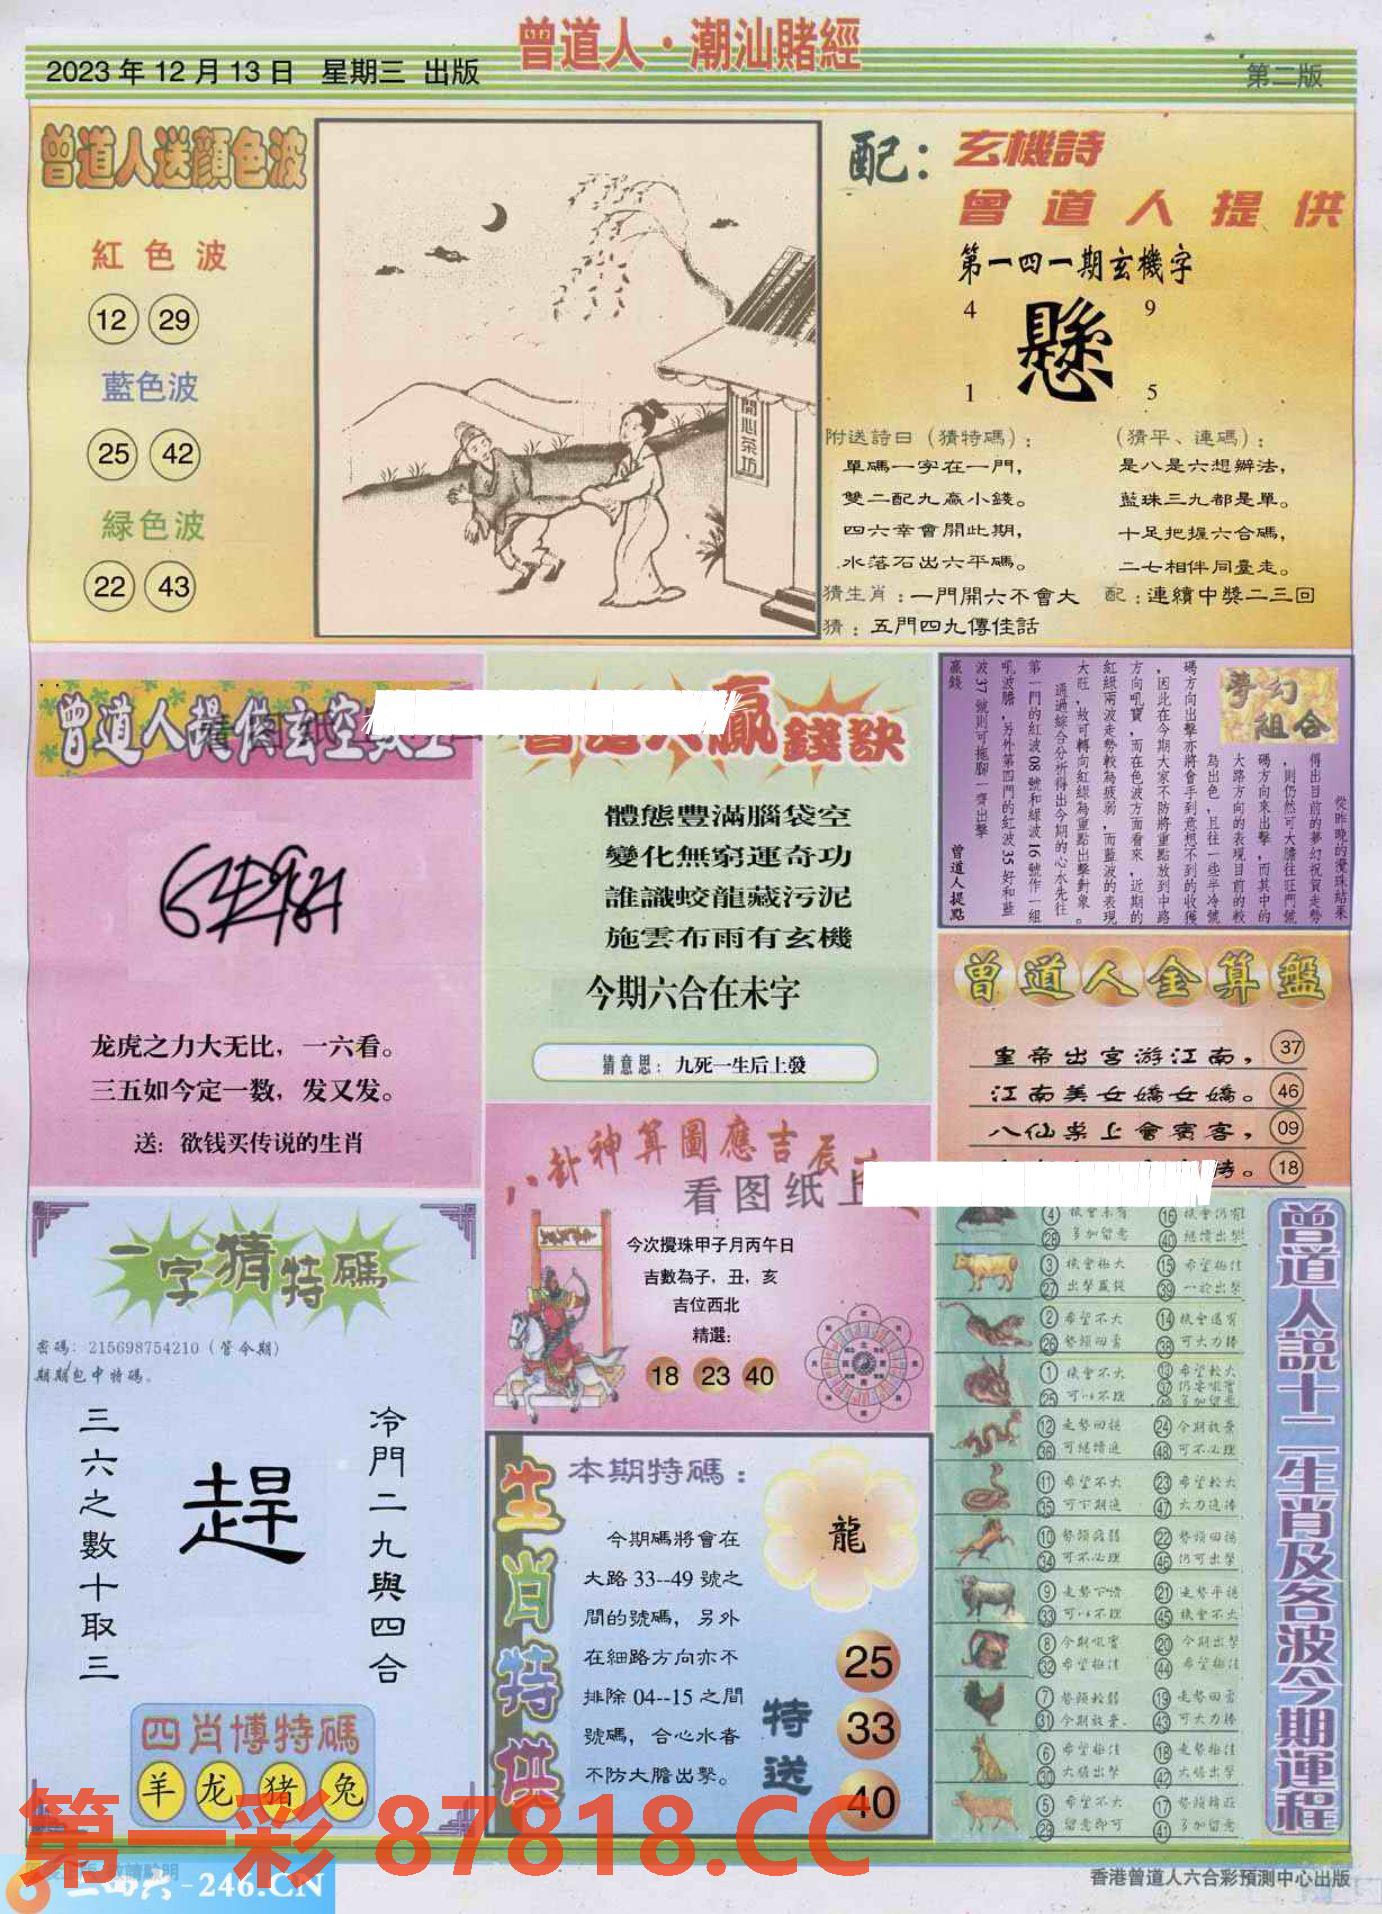 曾道人·潮汕賭經
2023年12月13日 星期三 出版
第二版
曾道人送顏色波
紅色波
12 29
藍色波
25 42
緑色波
22 43
開心茶坊
配：玄機詩
曾道人提供
第一四一期玄機字
4 9
懸
1 5
附送詩曰（猜特碼）：
單碼一字在一門，
雙二配九贏小錢。
四六幸會開此期，
水落石出六平碼。
（猜平、連碼）：
是八是六想辦法，
藍珠三九都是單。
十足把握六合碼，
二七相伴同臺走。
猜生肖：一門開六不會大 配：連續中獎二三回
猜：五門四九傳佳話
曾道人提供玄空
龙虎之力大无比，一六看。
三五如今定一数，发又发。
送：欲钱买传说的生肖
贏錢訣
體態豐滿腦袋空
變化無窮運奇功
誰識蛟龍藏污泥
施雲布雨有玄機
今期六合在未字
猜意思：九死一生后上發
夢幻組合
從昨晚的攪珠結果
得出目前的夢幻祝賀走勢
，則仍然可大膽往旺門號
碼方向來出擊，而其中的
大路方向的表現目前的較
為出色，且往一些半冷號
碼方向出擊亦將會手到意想不到的收獲
，因此在今期大家不防將重點放到中路
方向吼寶，而在色波方面看來，近期的
紅綠兩波走勢較為疲弱，而藍波的表現
大旺，故可轉向紅綠為重點出擊對象。
通過綜合分析得出今期的心水先往
第一門的紅波08號和綠波16號作一組
吼波膽，另外第四門的紅波35好和藍
波37號則可拖腳一齊出擊
贏錢
曾道人提點
曾道人金算盤
皇帝出宮游江南， 37
江南美女嬌女嬌。 46
八仙桌上會賓客， 09
。 18
八卦神算圖應吉辰
看图纸上
今次攪珠甲子月丙午日
吉數為子，丑，亥
吉位西北
精選：
18 23 40
一字猜特碼
密碼：215698754210（管今期）
期期包中特碼。
冷門二九與四合
趕
三六之數十取三
四肖博特碼
羊 龙 猪 兔
生肖特供
本期特碼：
今期碼將會在
大路33--49號之
間的號碼，另外
在細路方向亦不
排除04--15之間
號碼，合心水者
不防大膽出擊。
龍
特送
25
33
40
曾道人說十二生肖及各波今期運程
4 機會未有 16 機會仍有
28 多加留意 40 繼續出擊
3 機會極大 15 希望極佳
27 出擊贏錢 39 一於出擊
2 希望不大 14 機會還有
26 勢頭回落 38 可大力捧
1 機會不大 13 希望較大
25 可以不理 37
12 走勢回穩 24 今期放棄
36 可繼續追 48 可不必理
11 希望不大 23 希望較大
35 可下期追 47 大力追捧
10 勢頭疲弱 22 勢頭回穩
34 可不必理 46 仍可出擊
9 走勢下滑 21 走勢平穩
33 可以不理 45 機會不大
8 今期吼寶 20 今期出擊
32 希望極佳 44 希望極佳
7 勢頭較弱 19 走勢回落
31 今期放棄 43 可大力捧
6 希望極佳 18 走勢極佳
30 大膽出擊 42 大膽出擊
5 希望不大 17
29 留意即可 41 多加留意
第一彩 87818.CC
二四六-246.CN
香港曾道人六合彩預測中心出版